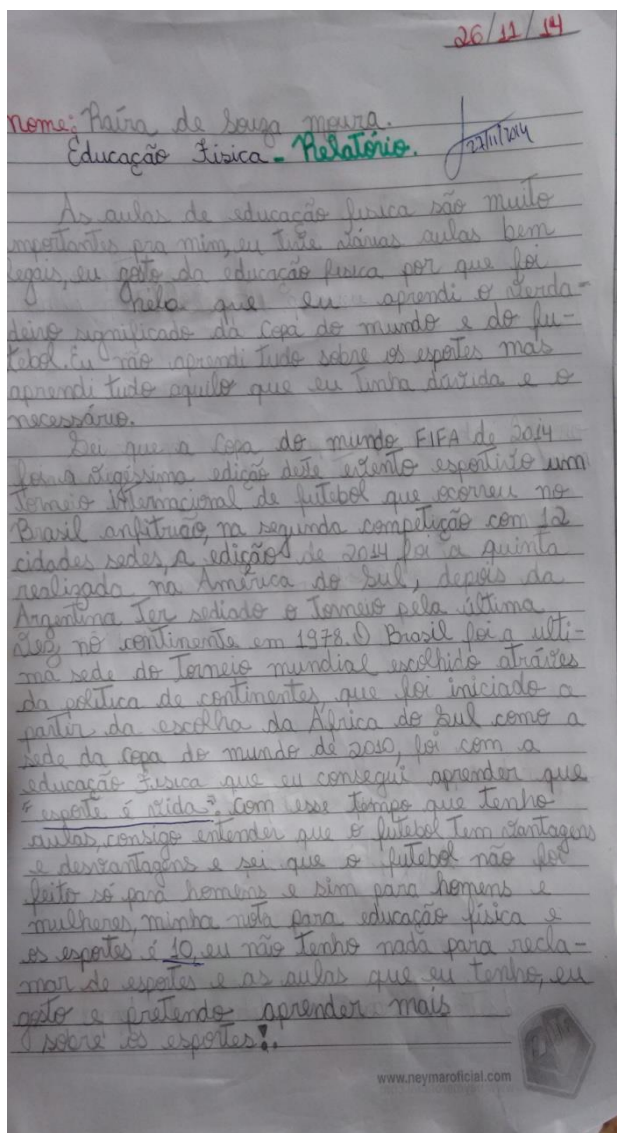 26/11/14
nome: Raíra de Souza moura.
Educação Física - Relatório.
27/11/2014
As aulas de educação fisica são muito
importantes pra mim, eu tive várias aulas bem
legais, eu gosto da educação fisica por que foi
nela que eu aprendi o verda-
deiro significado da copa do mundo e do fu-
tebol. Eu não aprendi tudo sobre os esportes mas
aprendi tudo aquilo que eu tinha dúvida e o
necessário.
Sei que a Copa do mundo FIFA de 2014
foi a vigéssima edição deste evento esportivo um
Torneio internacional de futebol que ocorreu no
Brasil anfitrião, na segunda competição com 12
cidades sedes, a edição de 2014 foi a quinta
realizada na América do Sul, depois da
Argentina Ter sediado o Torneio pela última
vez, no continente em 1978. O Brasil foi a ulti-
ma sede do Torneio mundial escolhido atráves
da política de continentes que foi iniciado a
partir da escolha da África do Sul como a
sede da copa do mundo de 2010, foi com a
educação física que eu consegui aprender que
"esporte é vida". Com esse tempo que tenho
aulas, consigo entender que o futebol Tem vantagens
e desvantagens e sei que o futebol não foi
feito só para homens e sim para homens e
mulheres, minha nota para educação física e
os esportes é 10, eu não tenho nada para recla-
mar de esportes e as aulas que eu tenho, eu
gosto e pretendo aprender mais
sobre os esportes!.
www.neymaroficial.com